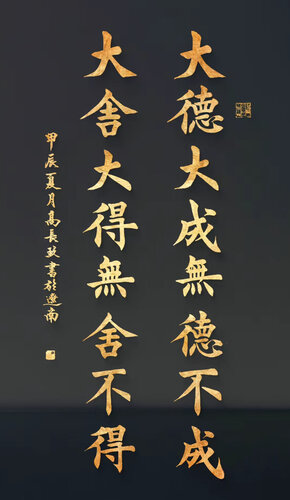 大德大成無德不成
大舍大得無舍不得
甲辰夏月高長敏書於遼南